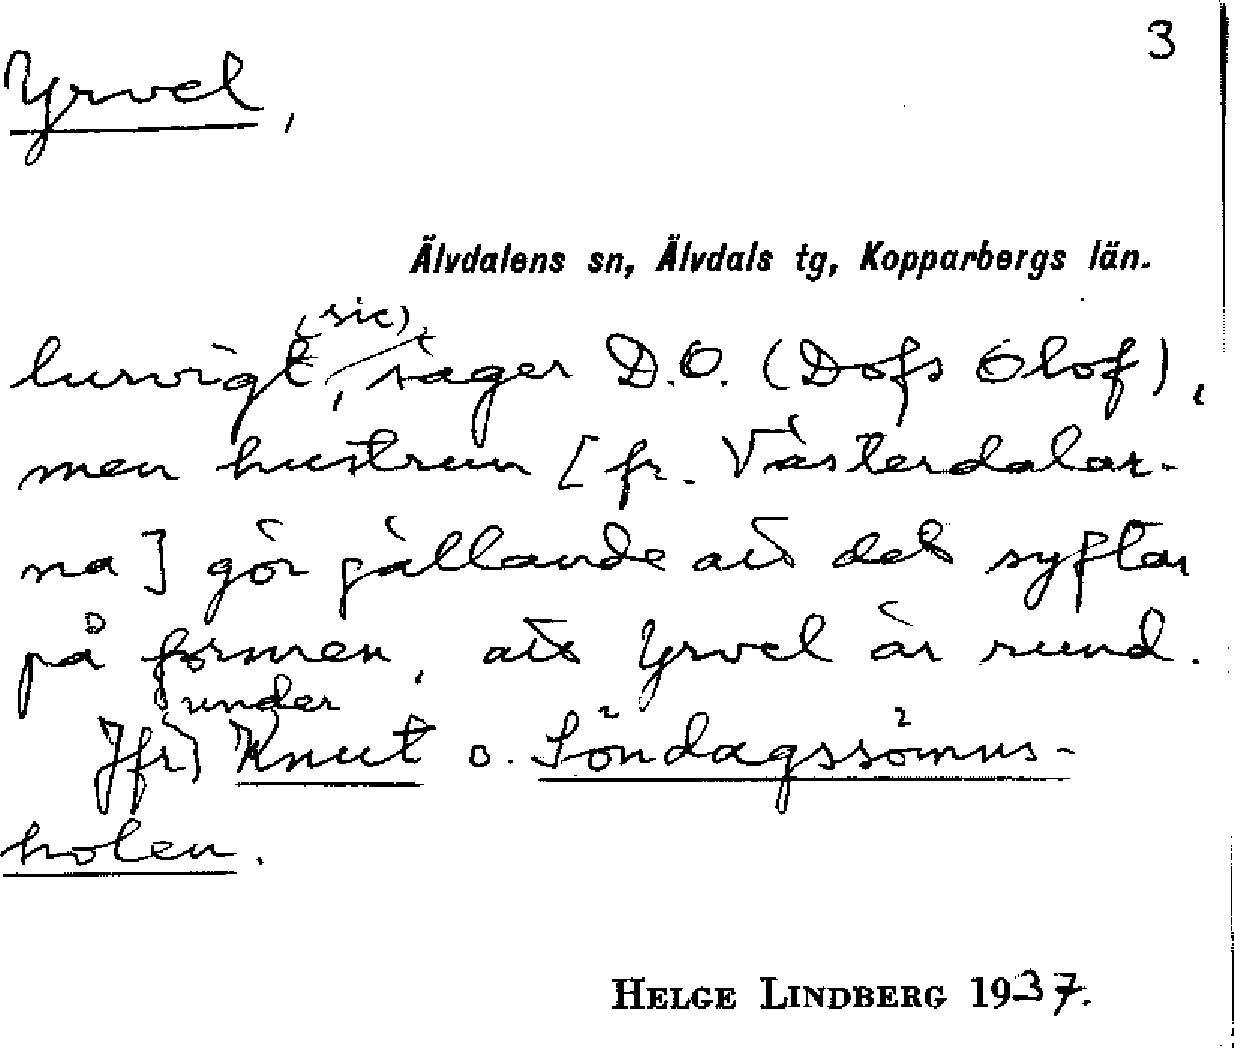 3
Yrvel,
Älvdalens sn, Älvdals tg, Kopparbergs län.
(sic)
lurvigt, säger D.O. (Dofs Olof),
men hustrun [fr. Västerdalar-
na] gör gällande att det syftar
på formen, att Yrvel är rund.
under
Jfr Knut o. Söndagssömns-
holen.
HELGE LINDBERG 1937.